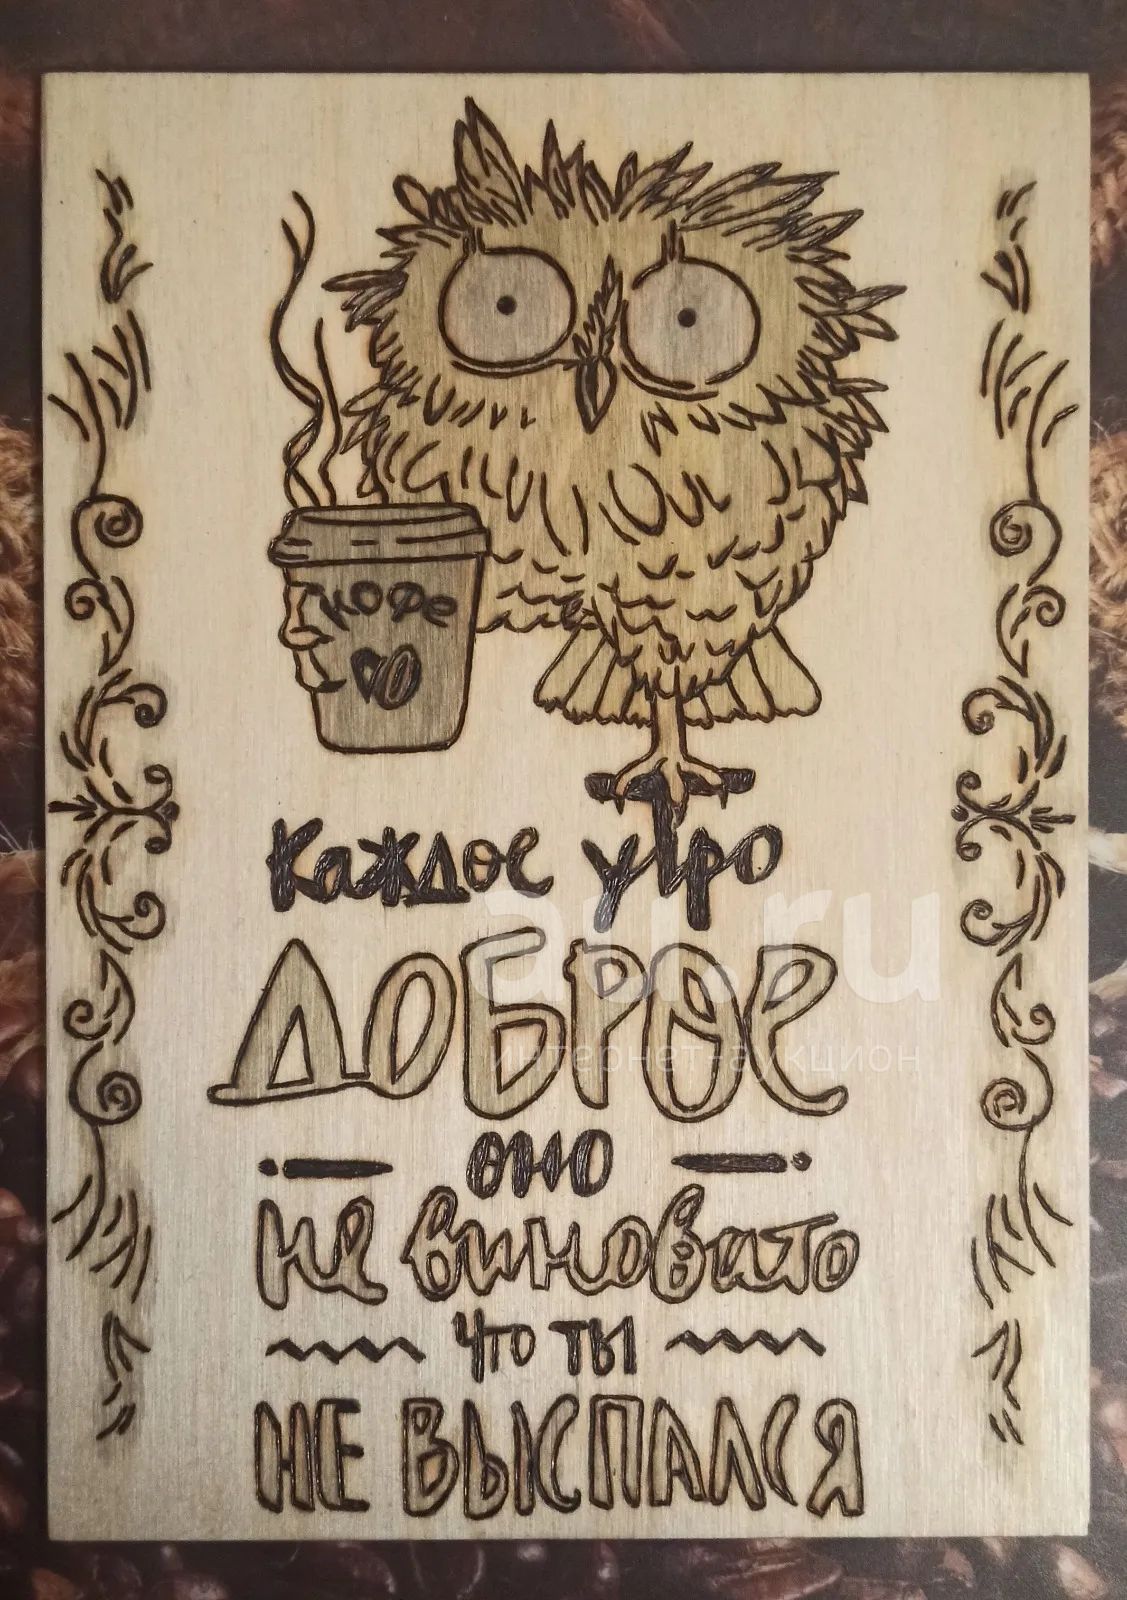 кофе
Каждое утро
ДОБРОЕ
au.ru
интернет-аукцион
оно
не виновато
что ты
НЕ ВЫСПАЛСЯ